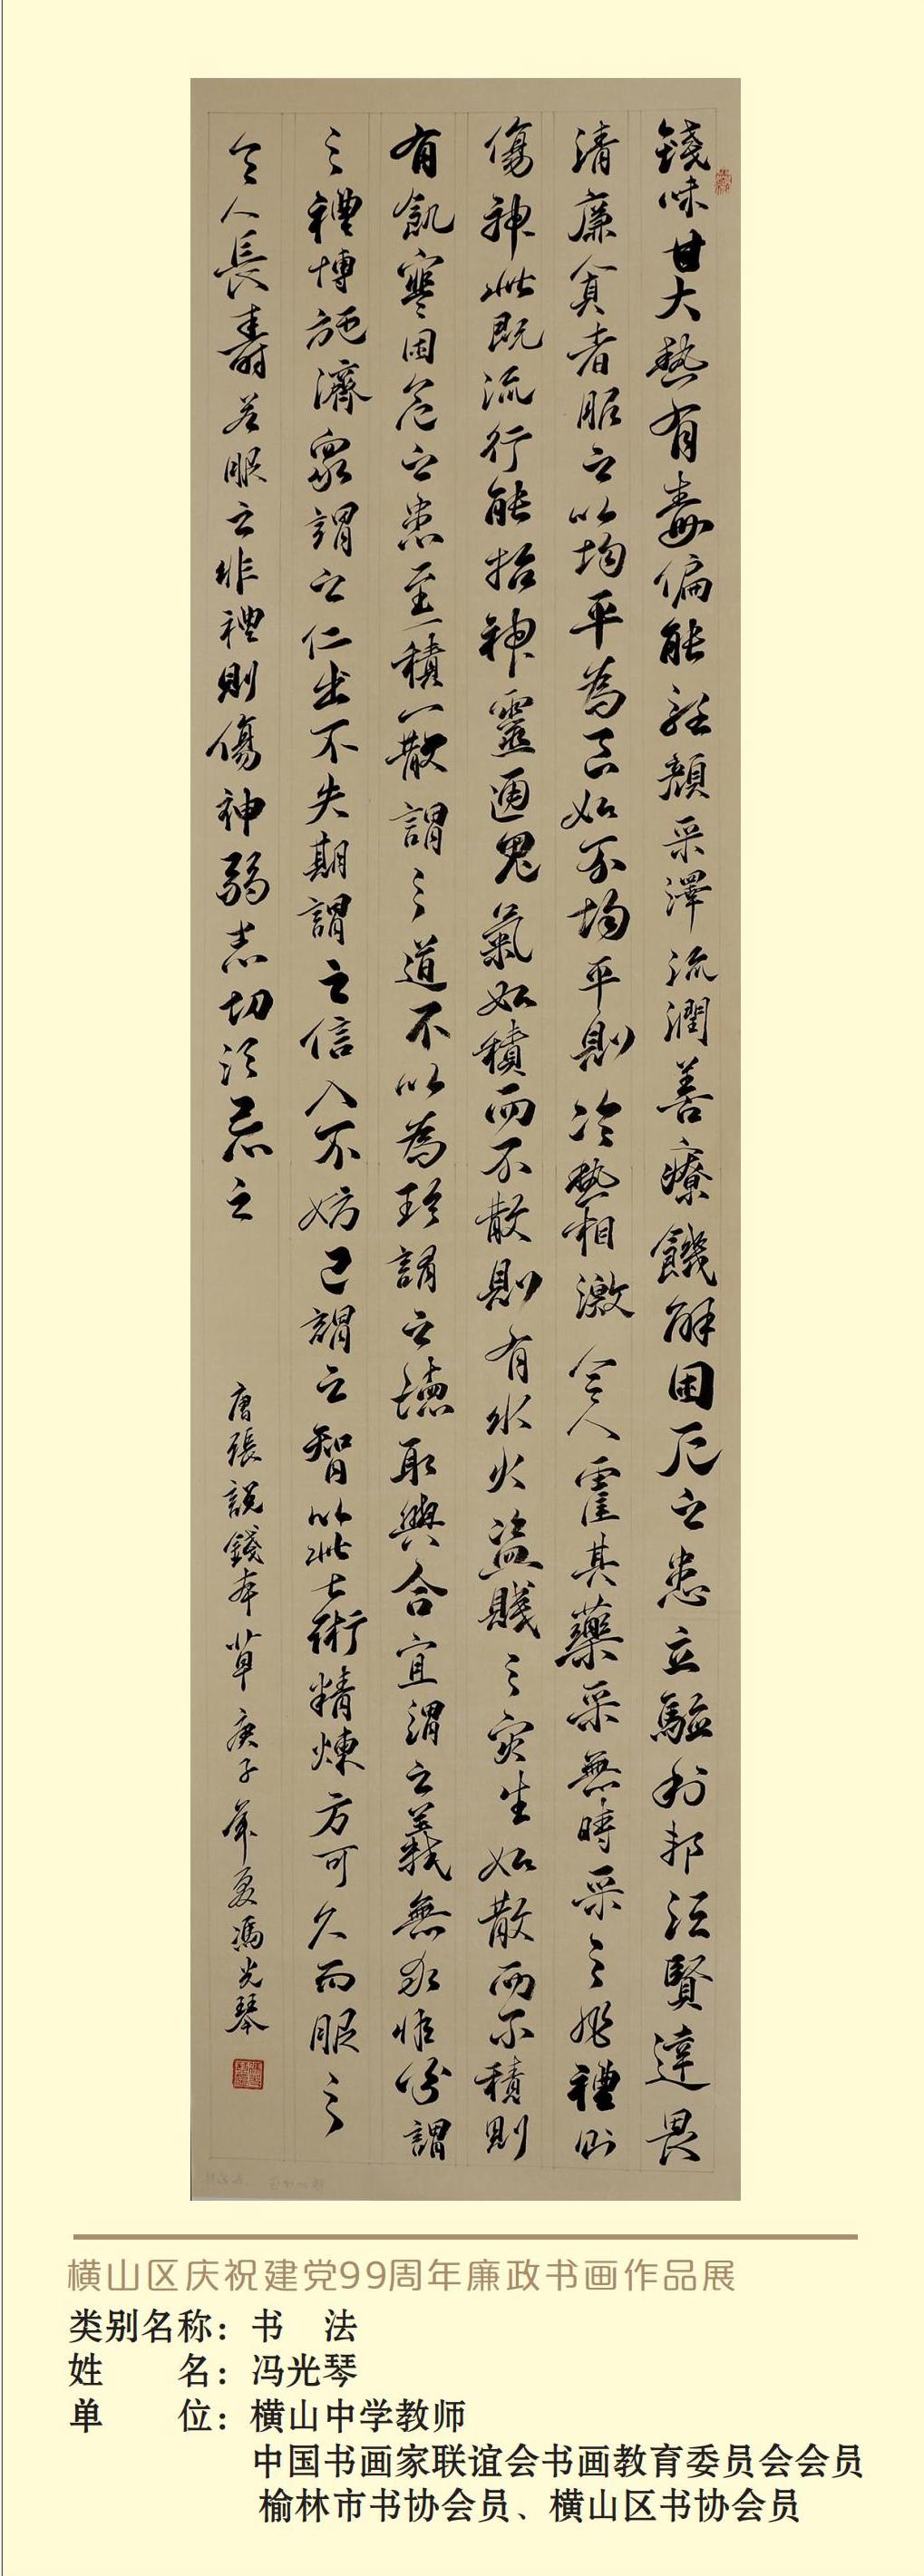 錢味甘大熱有毒偏能駐顏采澤流潤善療饑解困厄之患立驗利邦汙賢達畏
清廉貪者服之以均平為良如不均平則冷熱相激令人霍其藥采無時采之非禮則
傷神此既流行能招神靈通鬼氣如積而不散則有水火盜賤之灾生如散而不積則
有飢寒困危之患至一積一散謂之道不以為珍謂之德取與合宜謂之義無求非分謂
之禮博施濟眾謂之仁出不失期謂之信入不妨己謂之智以此七術精煉方可久而服之
令人長壽若服之非禮則傷神弱志切須忌之
唐張說錢本草庚子年夏馮光琴
横山区庆祝建党99周年廉政书画作品展
类别名称：书 法
姓 名：冯光琴
单 位：横山中学教师
中国书画家联谊会书画教育委员会会员
榆林市书协会员、横山区书协会员